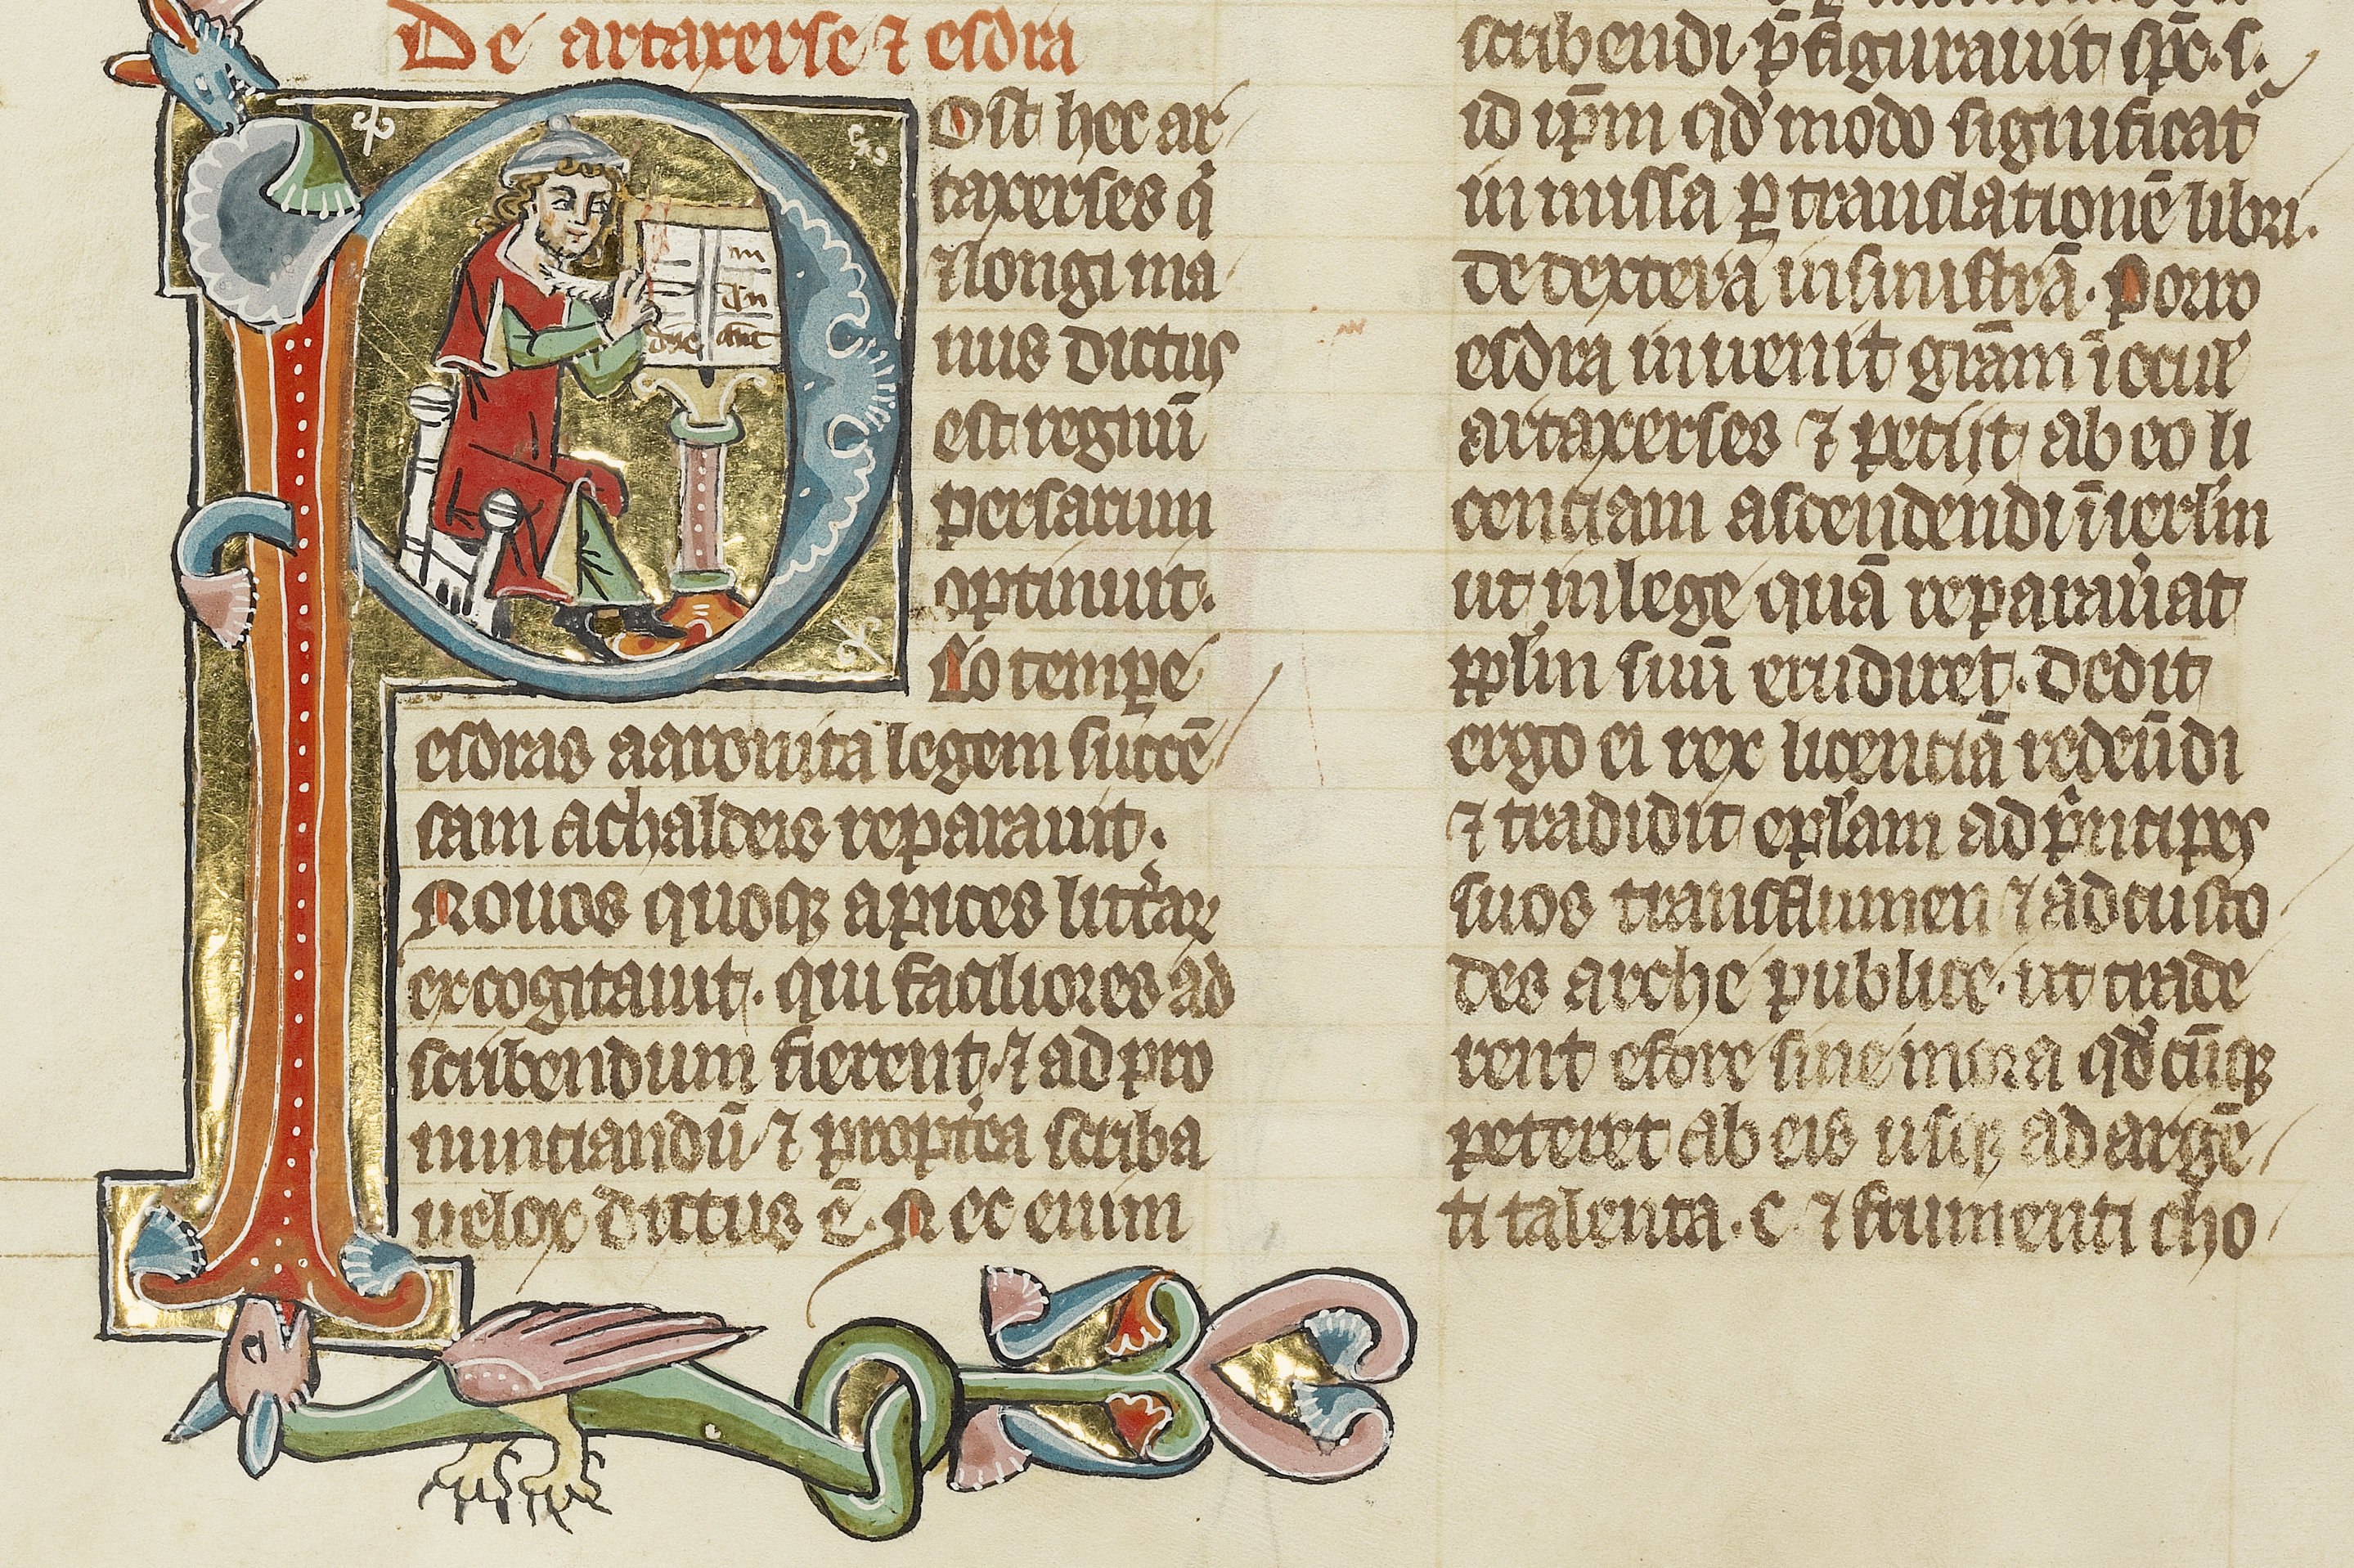 De artaxerse ⁊ esdra
Post hec ar
taxerses q̇
⁊ longi ma
nus dictus
est regnū
persarum
optinuit.
Eo temꝑe
esdras aaronita legem succē
sam a chaldeis reparauit.
Nouos quoqꝫ apices litt̾aꝝ
excogitauit. qui faciliores ad
scribendum fierent. ⁊ ad pro
nunciandū ⁊ propt̾ea scriba
uelox dictus ē. Nec enim
scribendi. p̄figurauit spc̄. s.
id ip̄m qd̾ modo significat᷑
in missa ꝑ translationē libri.
de dextera in sinistrā. Porro
esdra inuenit gr̄am ī ocul̾
artaxerses ⁊ petijt ab eo li
cenciam ascendendi ī ierl̄m
ut in lege quā reparau̾at
ppl̄m suū erudiret. Dedit
ergo ei rex licenciā redeūdi
⁊ tradidit epl̄am ad p̓ncipes
suos transflumen ⁊ ad custo
des arche publice. ut trade
rent esdre sine mora qd̾cūqꝫ
peteret ab eis usqꝫ ad argē
ti talenta. C. ⁊ frumenti cho